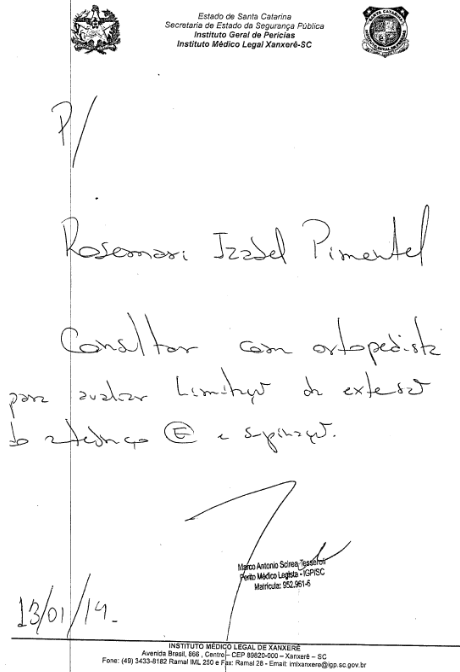 Estado de Santa Catarina
Secretaria de Estado da Segurança Pública
Instituto Geral de Perícias
Instituto Médico Legal Xanxerê-SC
P/
Rosemari Izabel Pimentel
Consultar com ortopedista
para avaliar limitação de extensão
do antebraço E e supinação.
Marco Antonio
Perito Médico Legista - IGP/SC
Matrícula: 952.961-6
13/01/14.
INSTITUTO MÉDICO LEGAL DE XANXERÊ
Avenida Brasil, 866 , Centro – CEP 89820-000 – Xanxerê – SC
Fone: (49) 3433-8182 Ramal IML 250 e Fax: Ramal 28 - Email: imlxanxere@igp.sc.gov.br